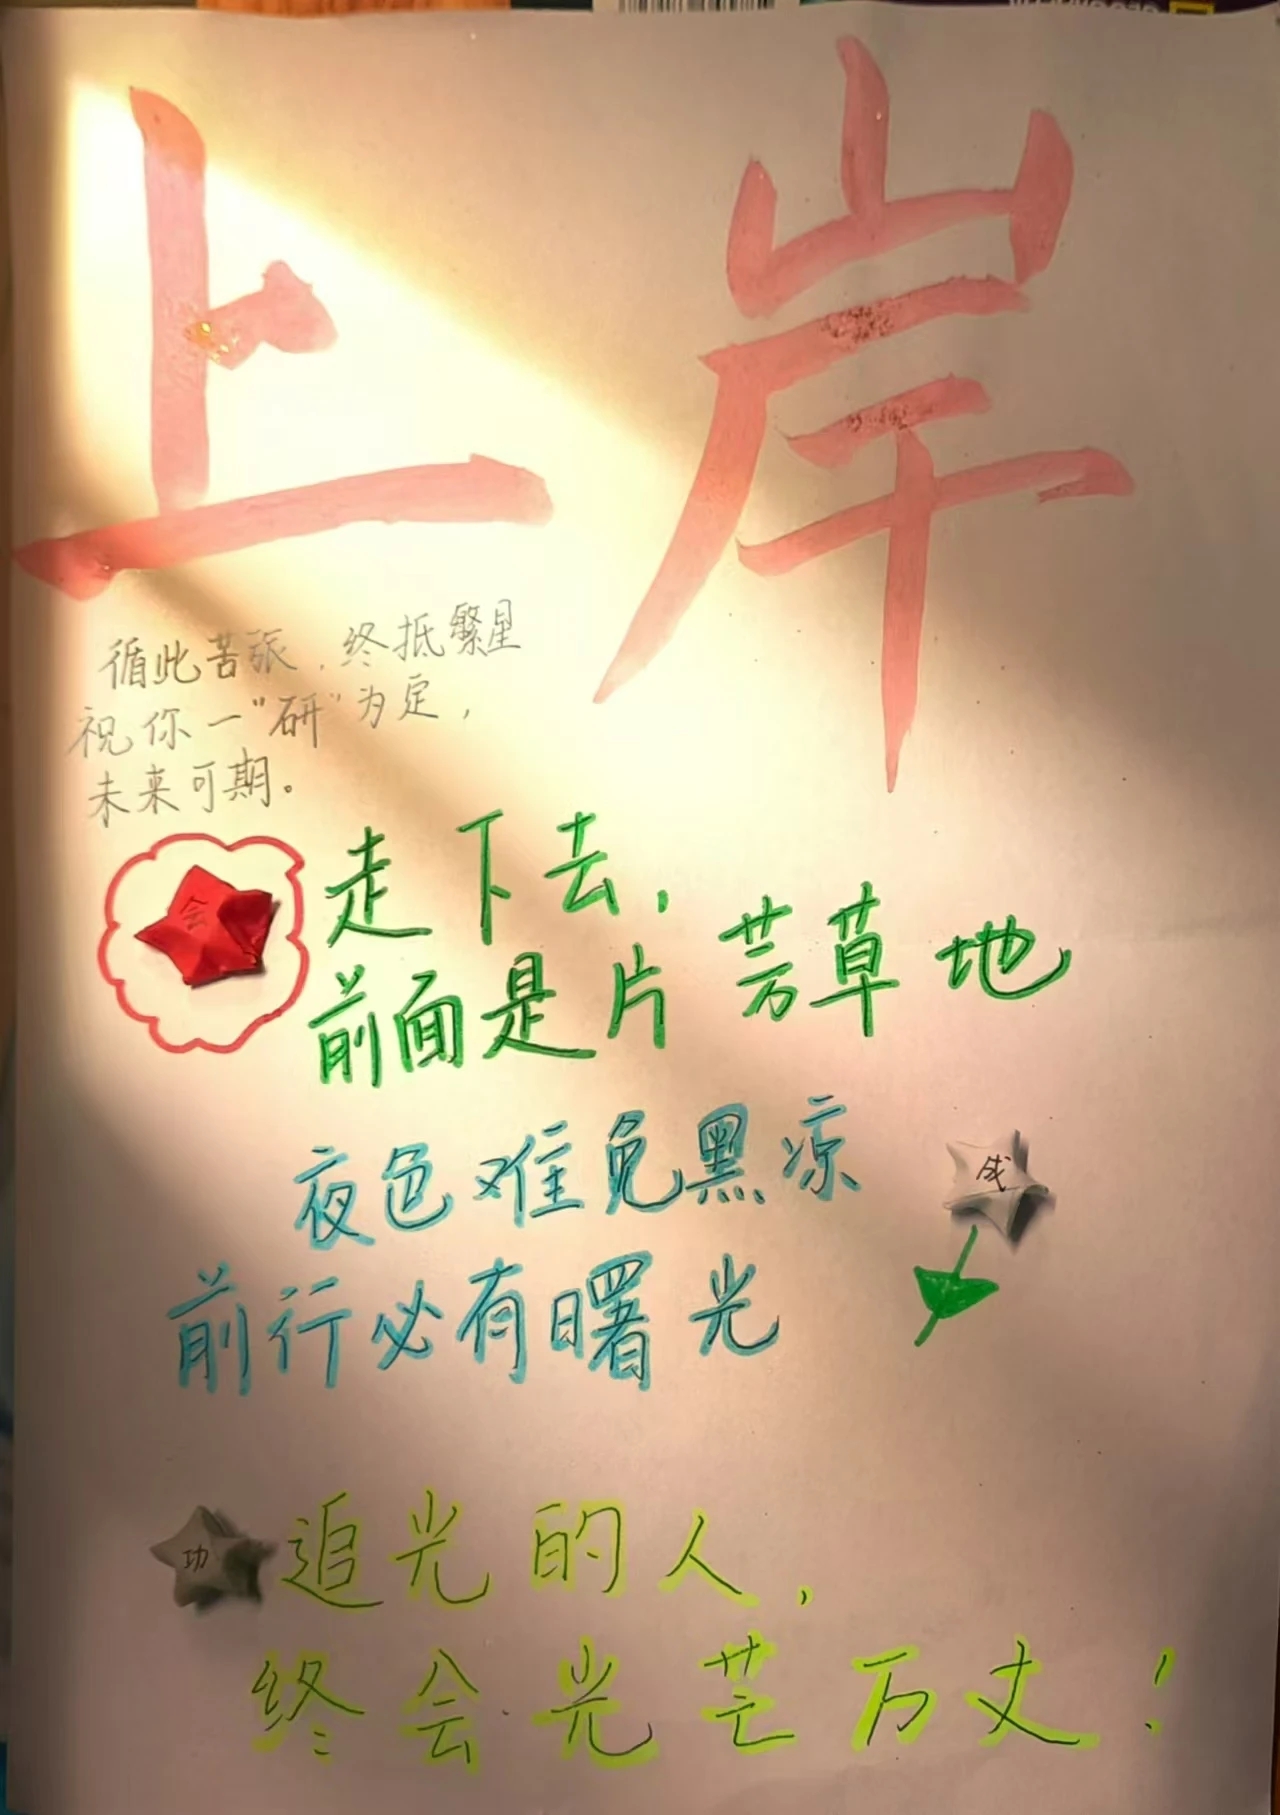 上岸
循此苦张，终抵繁星
祝你一"研"为定，
未来可期。
会
走下去，
前面是片芳草地
夜色难免黑凉
成
前行必有曙光
功
追光的人，
终会光芒万丈！